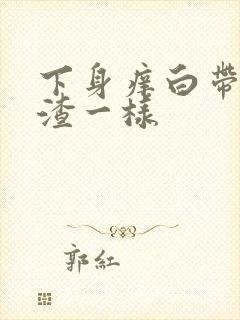 下身痒白带
渣一样
郭红